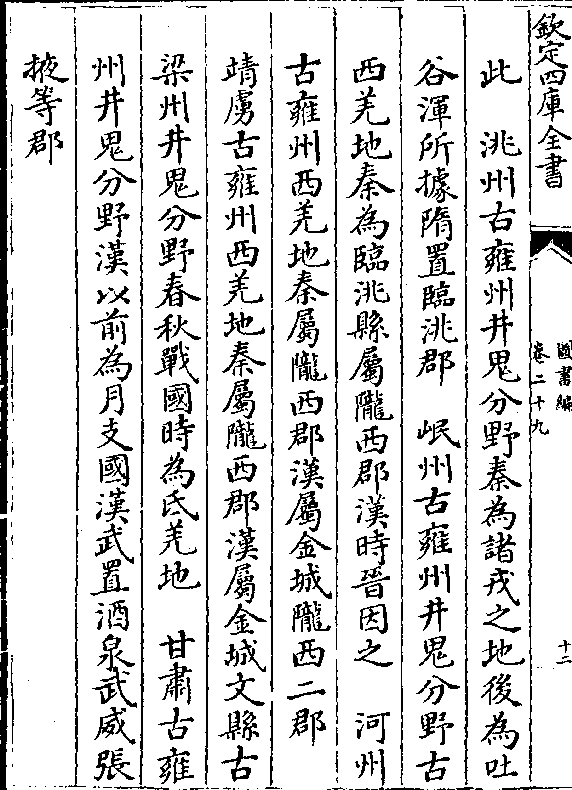 欽定四庫全書
圖書編
卷二十九
十二
此　洮州古雍州井鬼分野秦為諸戎之地後為吐
谷渾所據隋置臨洮郡　岷州古雍州井鬼分野古
西羌地秦為臨洮縣屬隴西郡漢時晉因之　河州
古雍州西羌地秦屬隴西郡漢屬金城隴西二郡
靖虜古雍州西羌地秦屬隴西郡漢屬金城文縣古
梁州井鬼分野春秋戰國時為氐羌地　甘肅古雍
州井鬼分野漢以前為月支國漢武置酒泉武威張
掖等郡